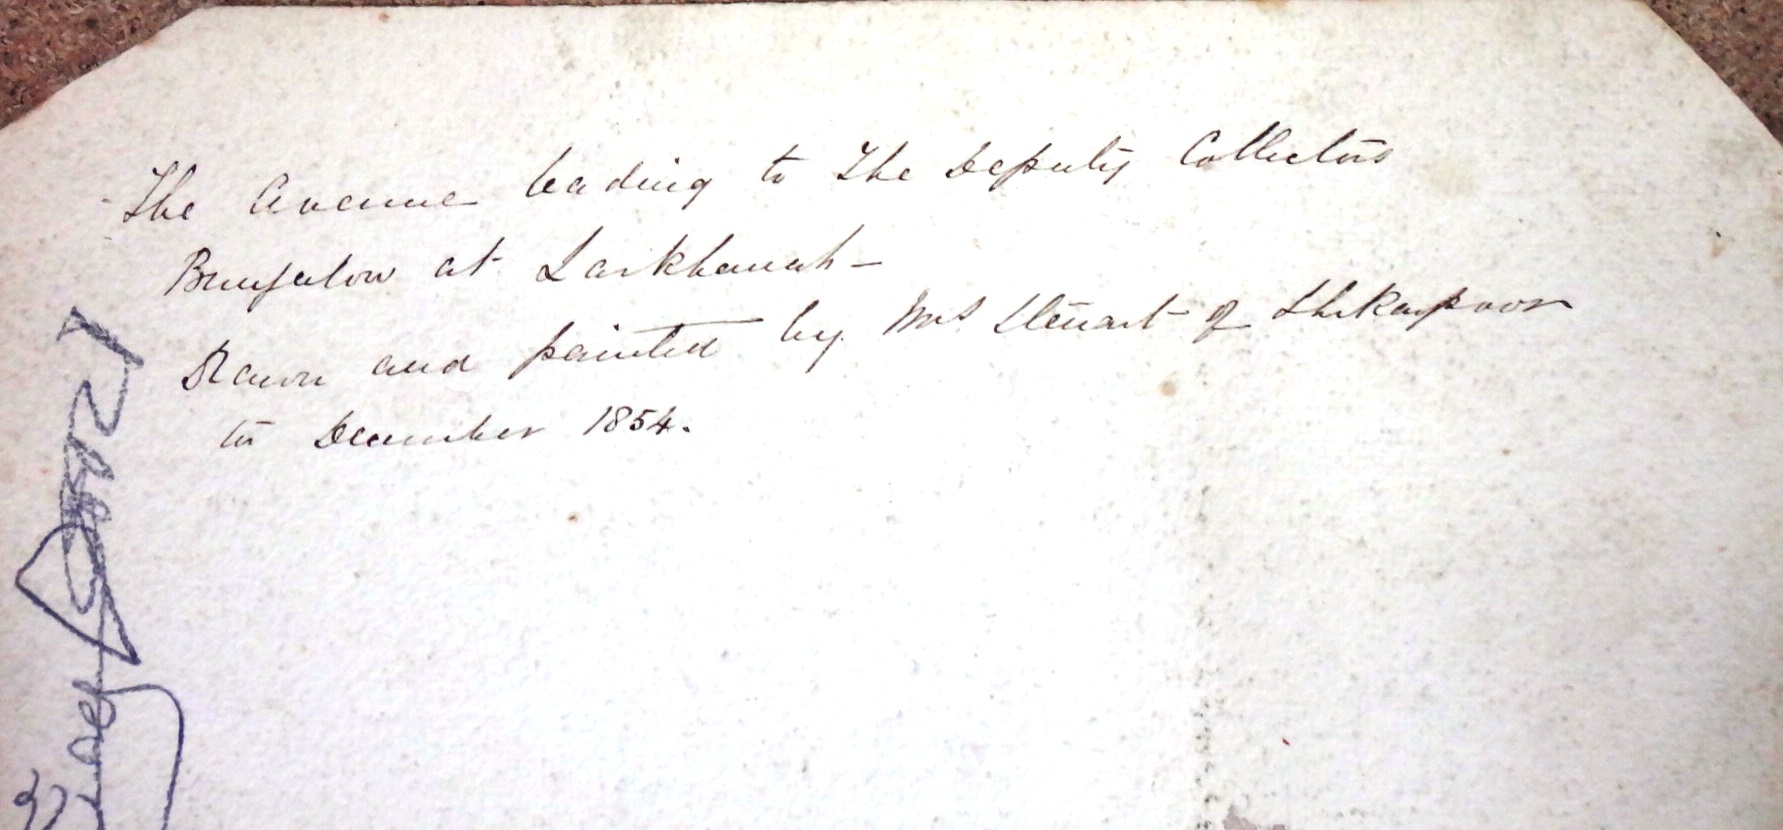 The Avenue leading to The Deputy Collectors
Bungalow at Larkhanah -
Drawn and painted by Mrs Steuart of Shikarpoor
in December 1854.